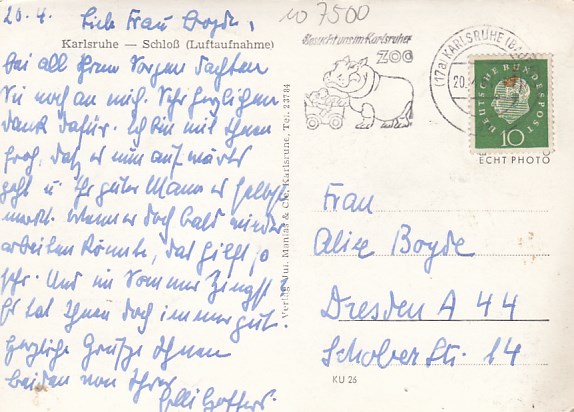 20.4. Liebe Frau Boyde,
Karlsruhe — Schloß (Luftaufnahme)
bei all Ihren Sorgen dachten
Sie noch an mich. Sehr herzlichen
dank dafür. Ich bin mit Ihnen
froh, daß es nun aufwärts
geht u. Ihr guter Mann es selbst
merkt. Wenn er doch bald wieder
arbeiten könnte, das hilft ja
sehr. Und im Sommer Zingst?
Es tat Ihnen doch immer gut.
Herzliche Grüße Ihnen
beiden von Ihrer
Verlag Jul. Manias & Cie. Karlsruhe, Tel. 23784
10 7500
Besucht uns im Karlsruher
ZOO
(17a) KARLSRUHE
20.
DEUTSCHE BUNDESPOST
10
ECHT PHOTO
Frau
Alice Boyde
Dresden A 44
Schober Str. 14
KU 26